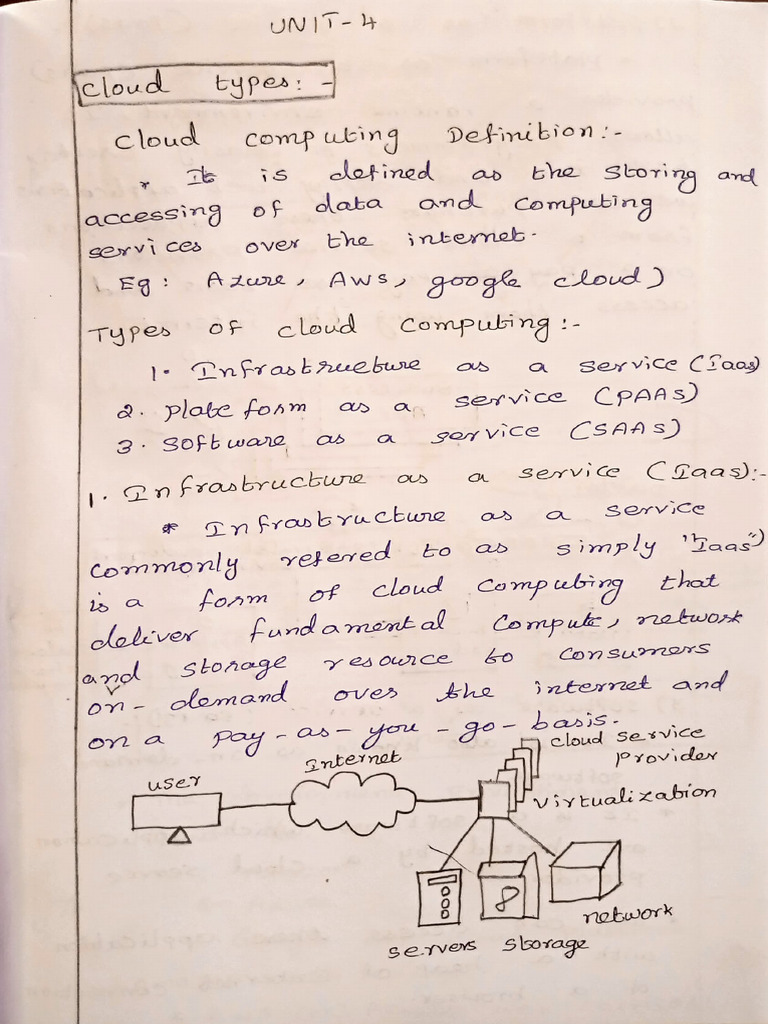 UNIT-4
Cloud types:-
Cloud computing Definition:-
* It is defined as the storing and
accessing of data and computing
services over the internet.
Eg: Azure, AWS, google cloud)
Types of cloud computing:-
1. Infrastructure as a service (Iaas)
2. plate form as a service (PAAS)
3. Software as a service (SAAS)
1. Infrastructure as a service (Iaas):-
* Infrastructure as a service
commonly refered to as simply "Iaas")
is a form of cloud computing that
deliver fundamental compute, network
and storage resource to consumers
on-demand over the internet and
on a pay-as-you-go-basis.
cloud service
provider
Internet
user
virtualization
network
servers storage